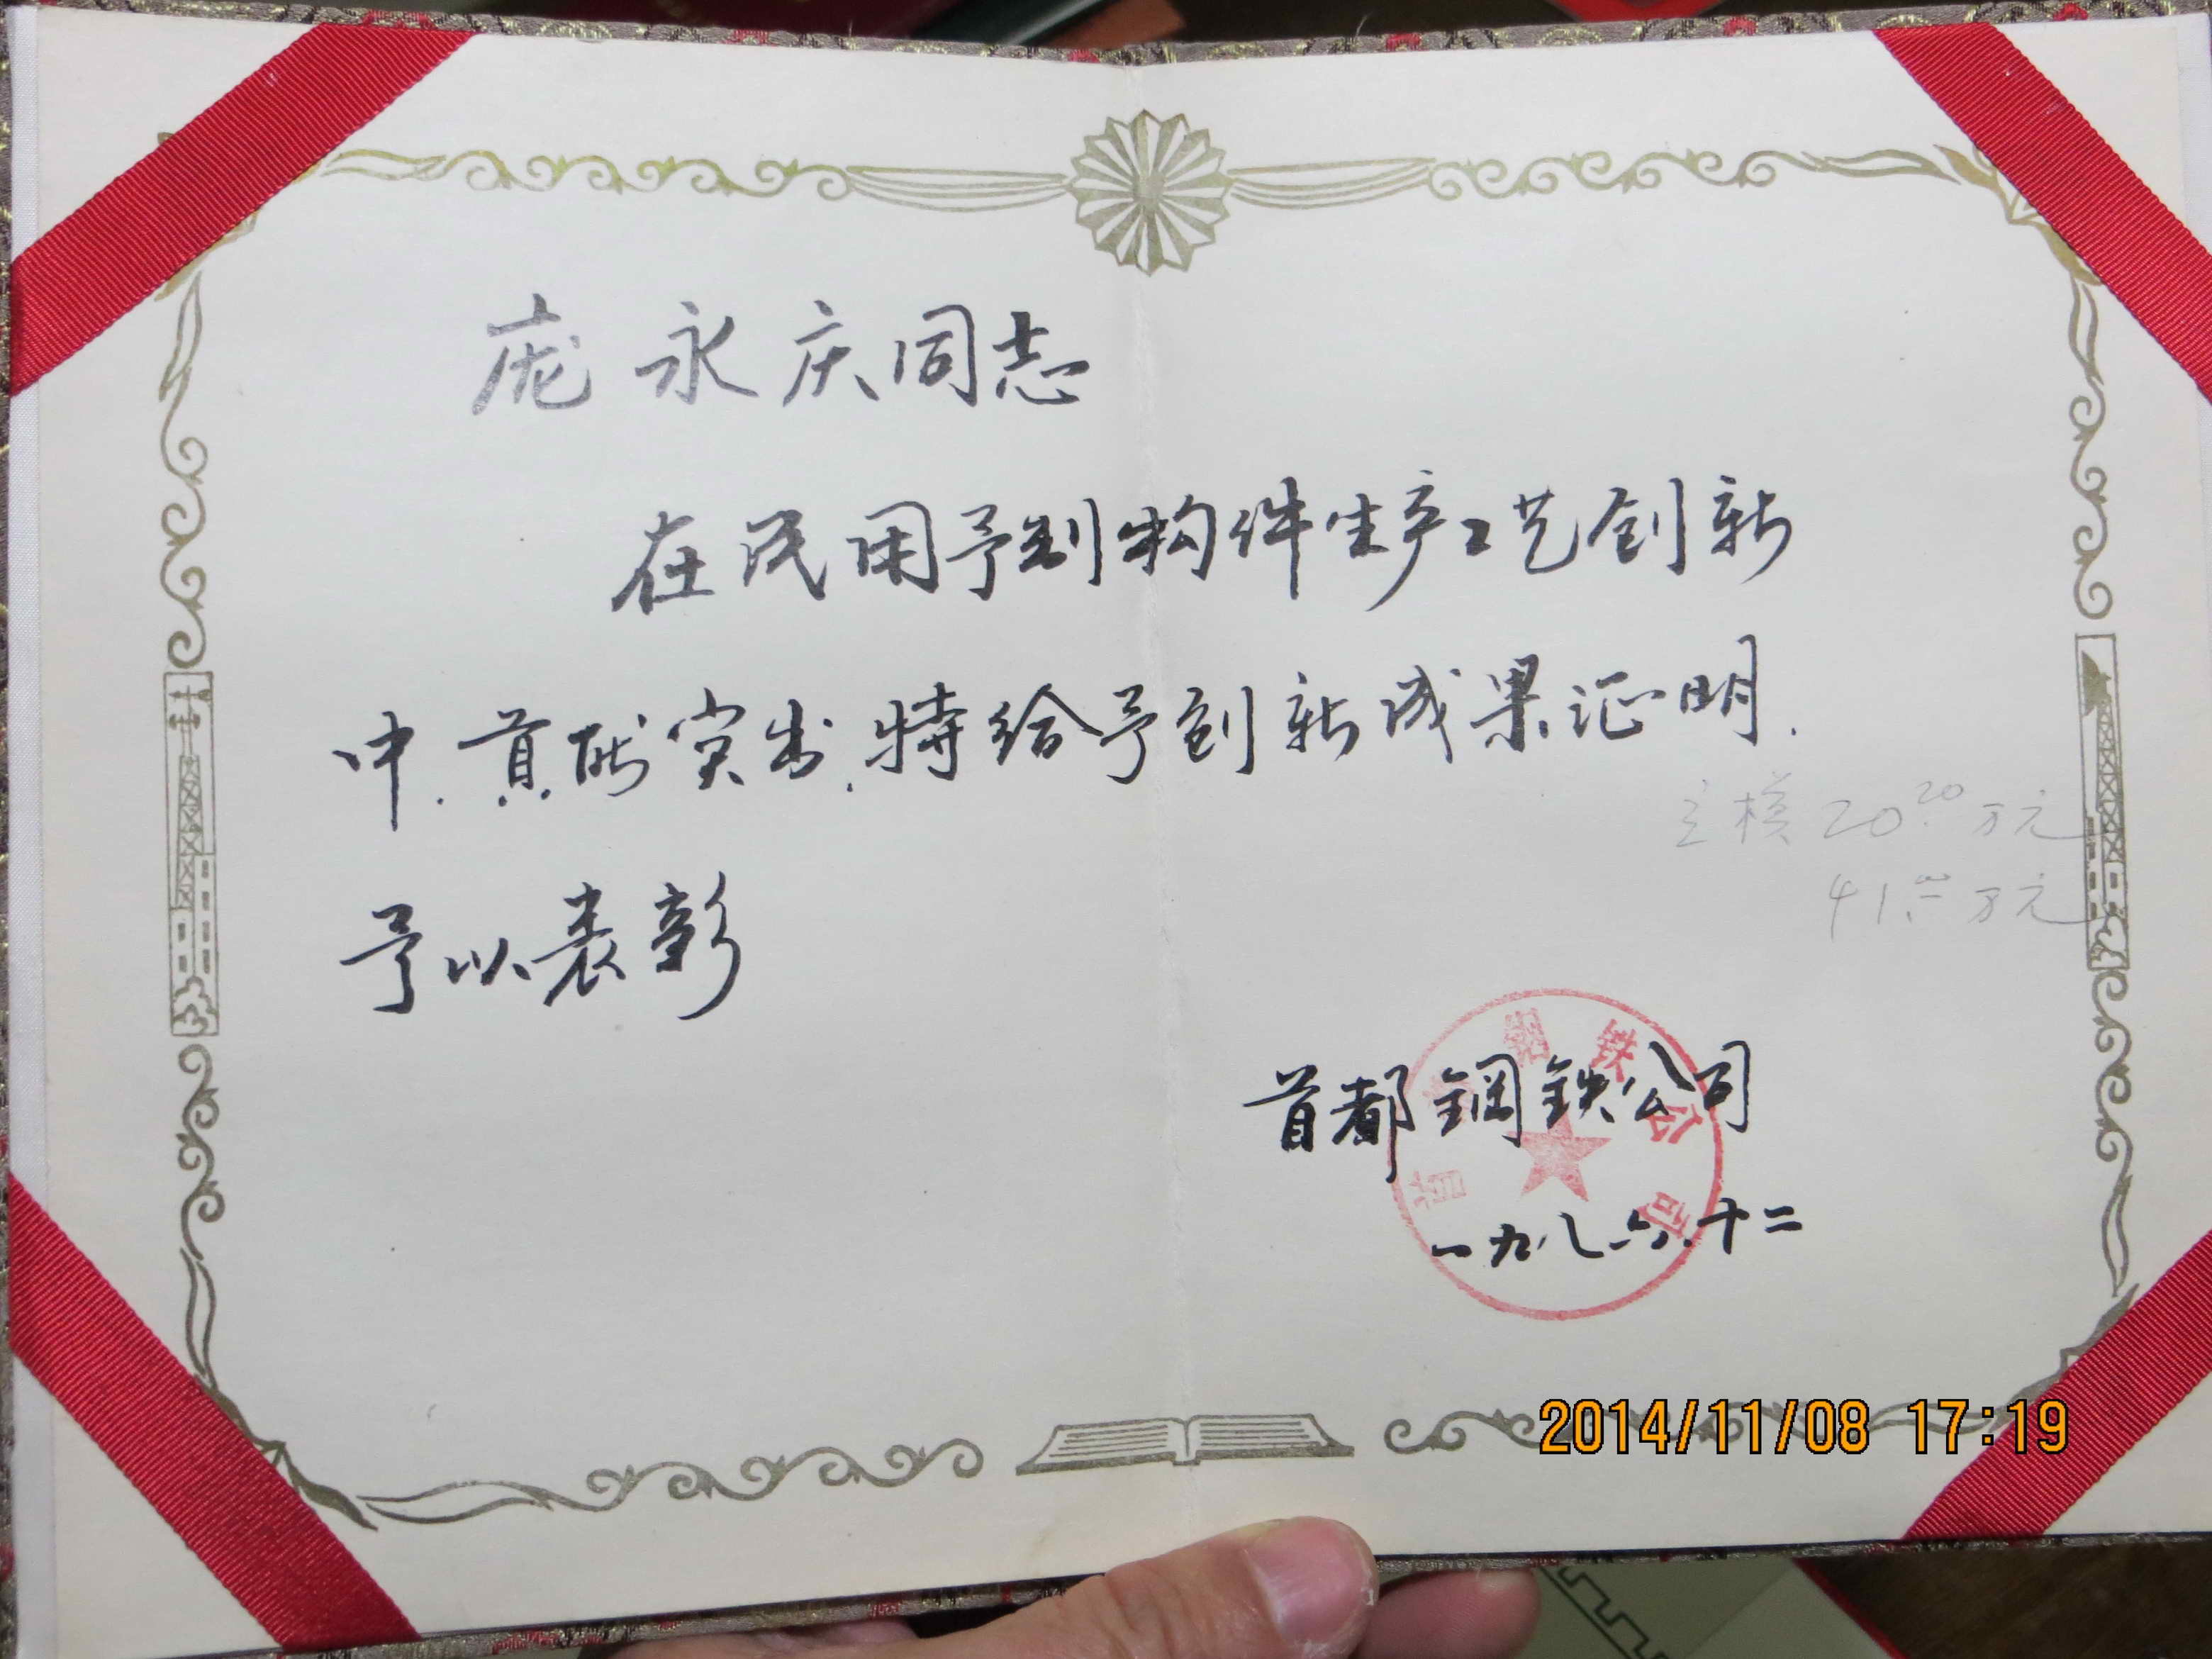 庞永庆同志
在民用予制构件生产工艺创新
中.贡献突出.特给予创新成果证明.
予以表彰
20.20万元
万元
首都钢铁公司
首都钢铁公司
一九八六.十二
2014/11/08 17:19